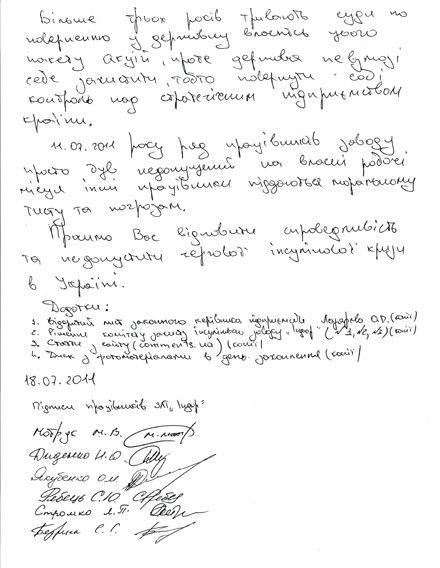 Більше трьох років тривають суди по
поверненню у державну власність цього
пакету акцій, проте держава не в змозі
себе захистити, тобто повернути собі
контроль над стратегічним підприємством
країни.
11.07.2011 року ряд працівників заводу
просто був недопущений на власні робочі
місця інші працівники піддаються моральному
тиску та погрозам.
Просимо Вас відновити справедливість
та недопустити чергової інсулінової кризи
в Україні.
Додатки:
1. Відкритий лист законного керівника підприємства Лазарєва О.Р. (копії)
2. Рішення комітету захисту інсулінового заводу "Індар" (№1, №2, №3) (копії)
3. Статті з сайту (comments.ua) (копії)
4. Диск з фотоматеріалами в день захоплення (копії)
18.07.2011
Підписи працівників ЗАТ "Індар"
М. В.
Диденко Н. О.
Якубенко О. М.
С. Ю.
Стромко Л. П.
С. Г.